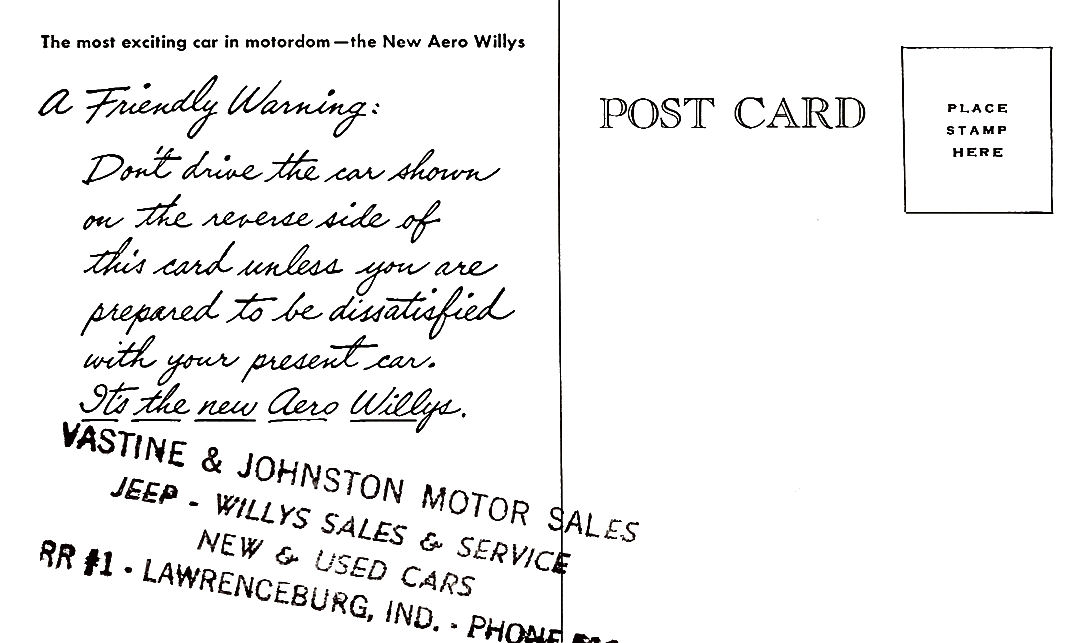 The most exciting car in motordom—the New Aero Willys
A Friendly Warning:
Don't drive the car shown
on the reverse side of
this card unless you are
prepared to be dissatisfied
with your present car.
It's the new Aero Willys.
VASTINE & JOHNSTON MOTOR SALES
JEEP - WILLYS SALES & SERVICE
NEW & USED CARS
RR #1 - LAWRENCEBURG, IND. - PHONE
POST CARD
PLACE
STAMP
HERE